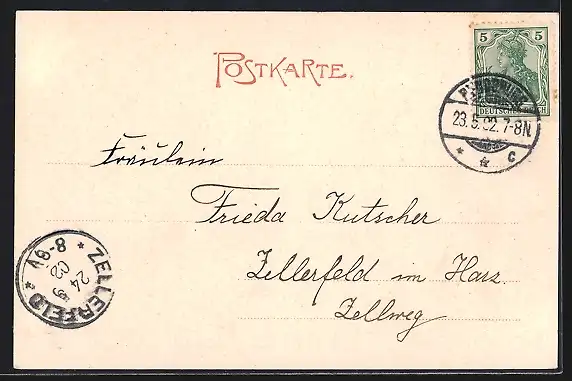 POSTKARTE.
5 5
DEUTSCHES REICH
23.5.02.7-8N
* * C
Fräulein
Frieda Kutscher
Zellerfeld im Harz.
Zellweg
ZELLERFELD
24 5
02
8-9V